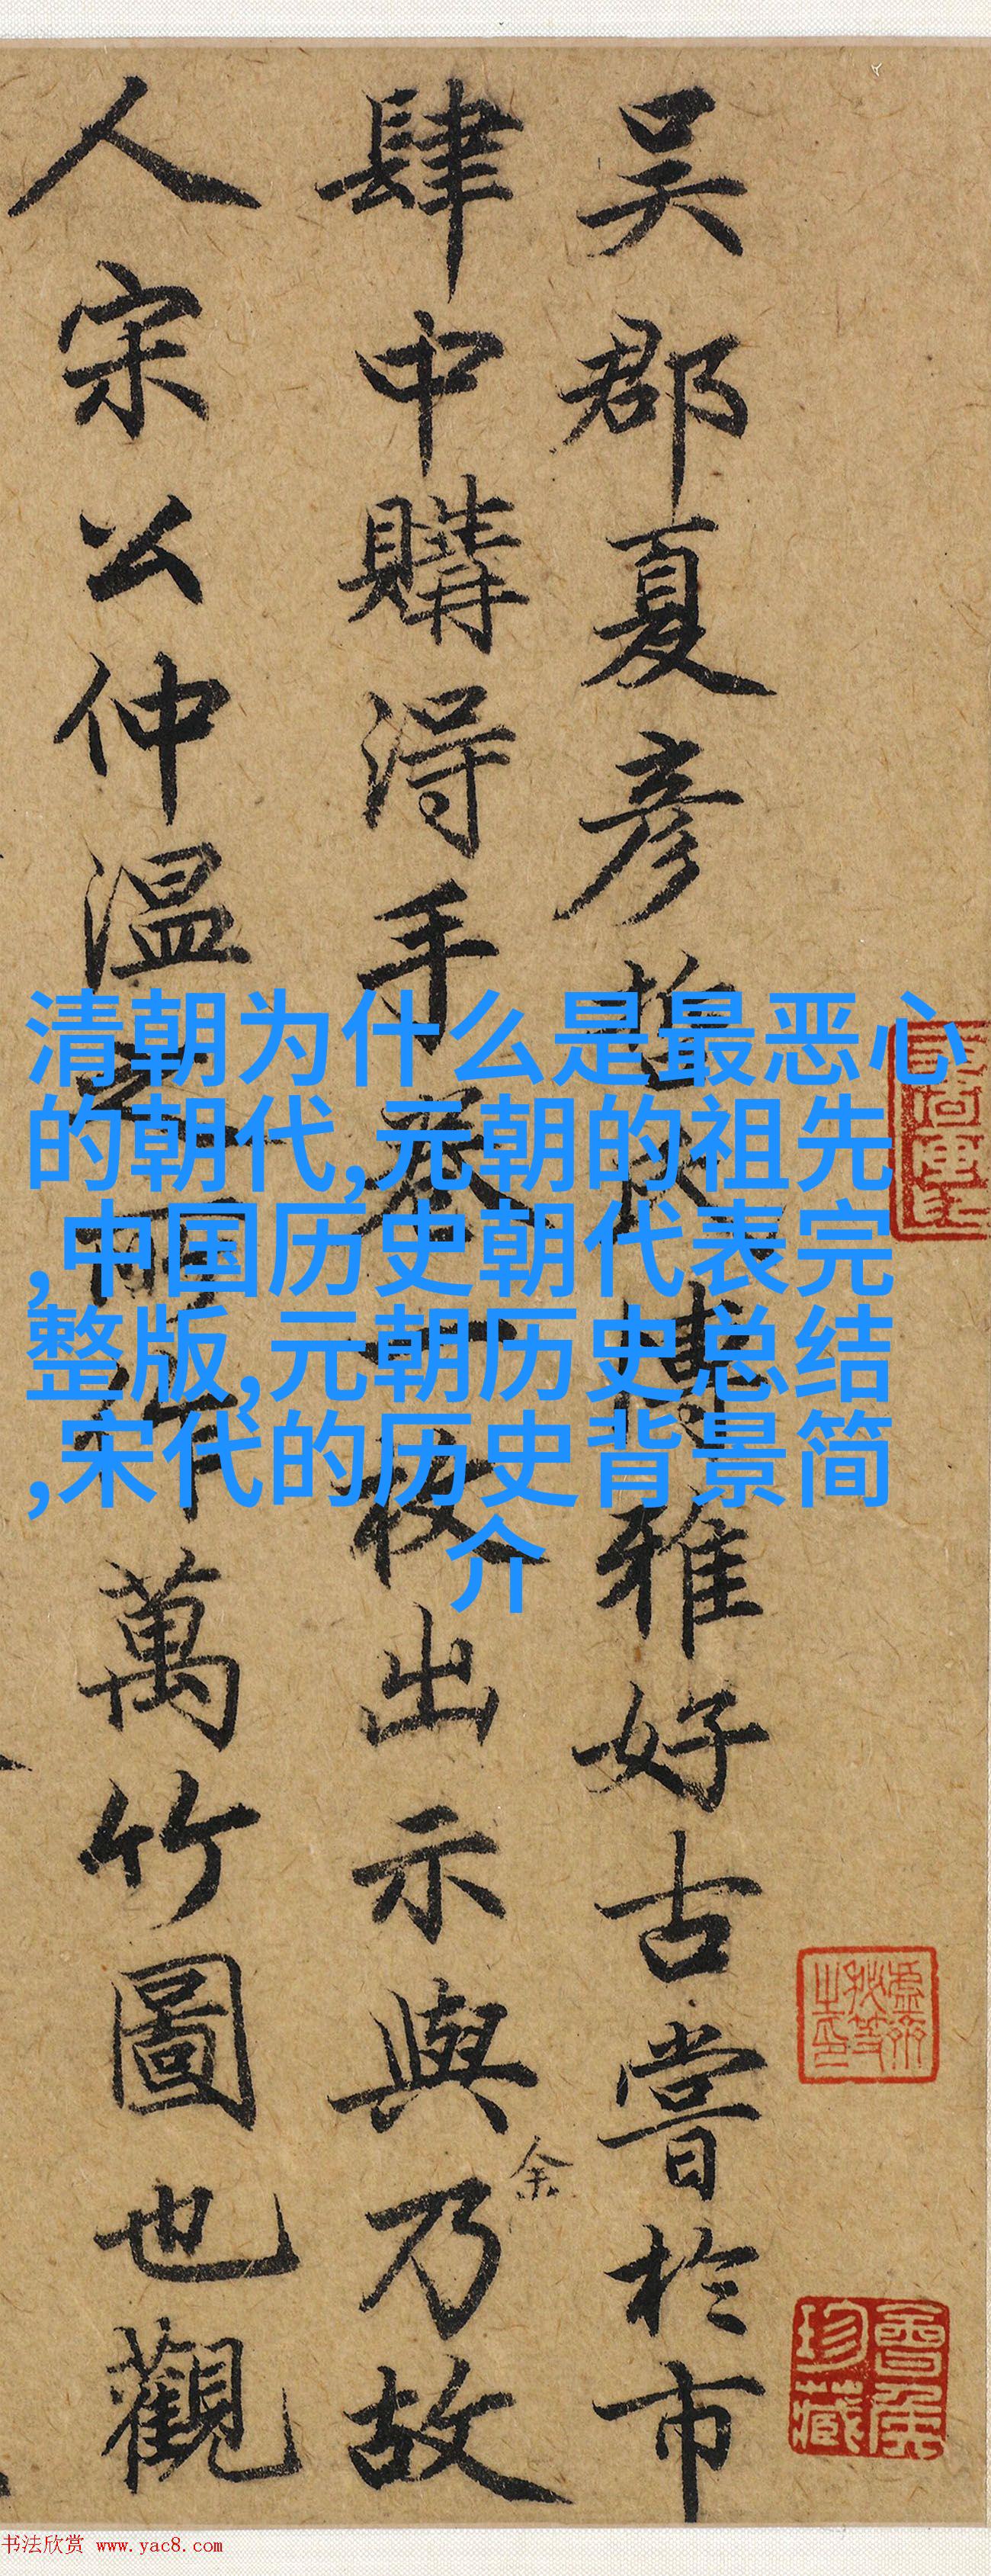 吴郡夏彦
雅好古嘗於市
肆中購淂手卷一枚出示與乃故
余
人宗公仲温
萬竹圖也觀
清朝为什么是最恶心
的朝代,元朝的祖先
,中国历史朝代表完
整版,元朝历史总结
,宋代的历史背景简
介
珍藏
书法欣赏 www.yac8.com